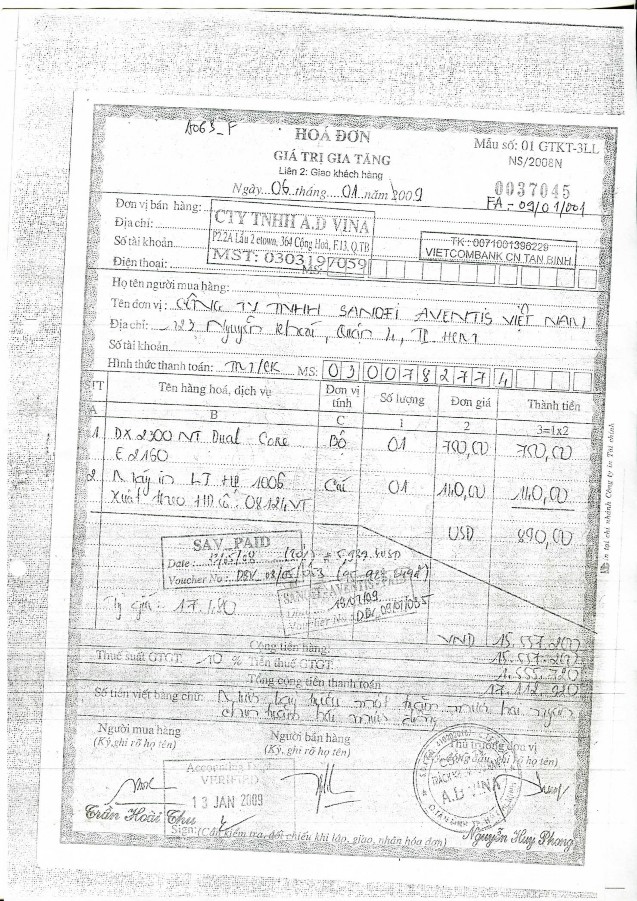 A063_F
HOÁ ĐƠN
GIÁ TRỊ GIA TĂNG
Liên 2: Giao khách hàng
Ngày 06 tháng 01 năm 2009
Mẫu số: 01 GTKT-3LL
NS/2008N
0037045
FA - 09/01/001
Đơn vị bán hàng:
CTY TNHH A.D VINA
Địa chỉ:
P2.2A Lầu 2 etown, 364 Cộng Hoà, F.13, Q.TB
Số tài khoản
MST: 0303197059
TK: 0071001396229
VIETCOMBANK CN TAN BINH
Điện thoại: MS:
Họ tên người mua hàng:
Tên đơn vị: CÔNG TY TNHH SANOFI AVENTIS VIỆT NAM
Địa chỉ: 123 Nguyễn Khoái, Quận 4, TP HCM
Số tài khoản
Hình thức thanh toán: TM/CK MS: 0300782774
STT Tên hàng hoá, dịch vụ Đơn vị tính Số lượng Đơn giá Thành tiền
A B C 1 2 3=1x2
1 DX 2300 MT Dual Core Bộ 01 750,00 750,00
E2160
2 Máy in LJ HP 1006 Cái 01 140,00 140,00
Xuất theo HĐ số: 08124NT
USD 890,00
SAV_PAID
Date:
Voucher No:
SANOFI-AVENTIS
13/07/09
Voucher No:
Tỷ giá: 17.480
Cộng tiền hàng: VND 15.557.200
15.557.200
Thuế suất GTGT: 10 % Tiền thuế GTGT: 1.555.720
Tổng cộng tiền thanh toán 17.112.920
Số tiền viết bằng chữ: Mười bảy triệu một trăm mười hai ngàn
chín trăm hai mươi đồng
Người mua hàng
(Ký, ghi rõ họ tên)
Người bán hàng
(Ký, ghi rõ họ tên)
Thủ trưởng đơn vị
VERIFIED
13 JAN 2009
Sign:
A.D VINA
Trần Hoài Thu
Nguyễn Huy Phong
(Cần kiểm tra, đối chiếu khi lập, giao, nhận hóa đơn)